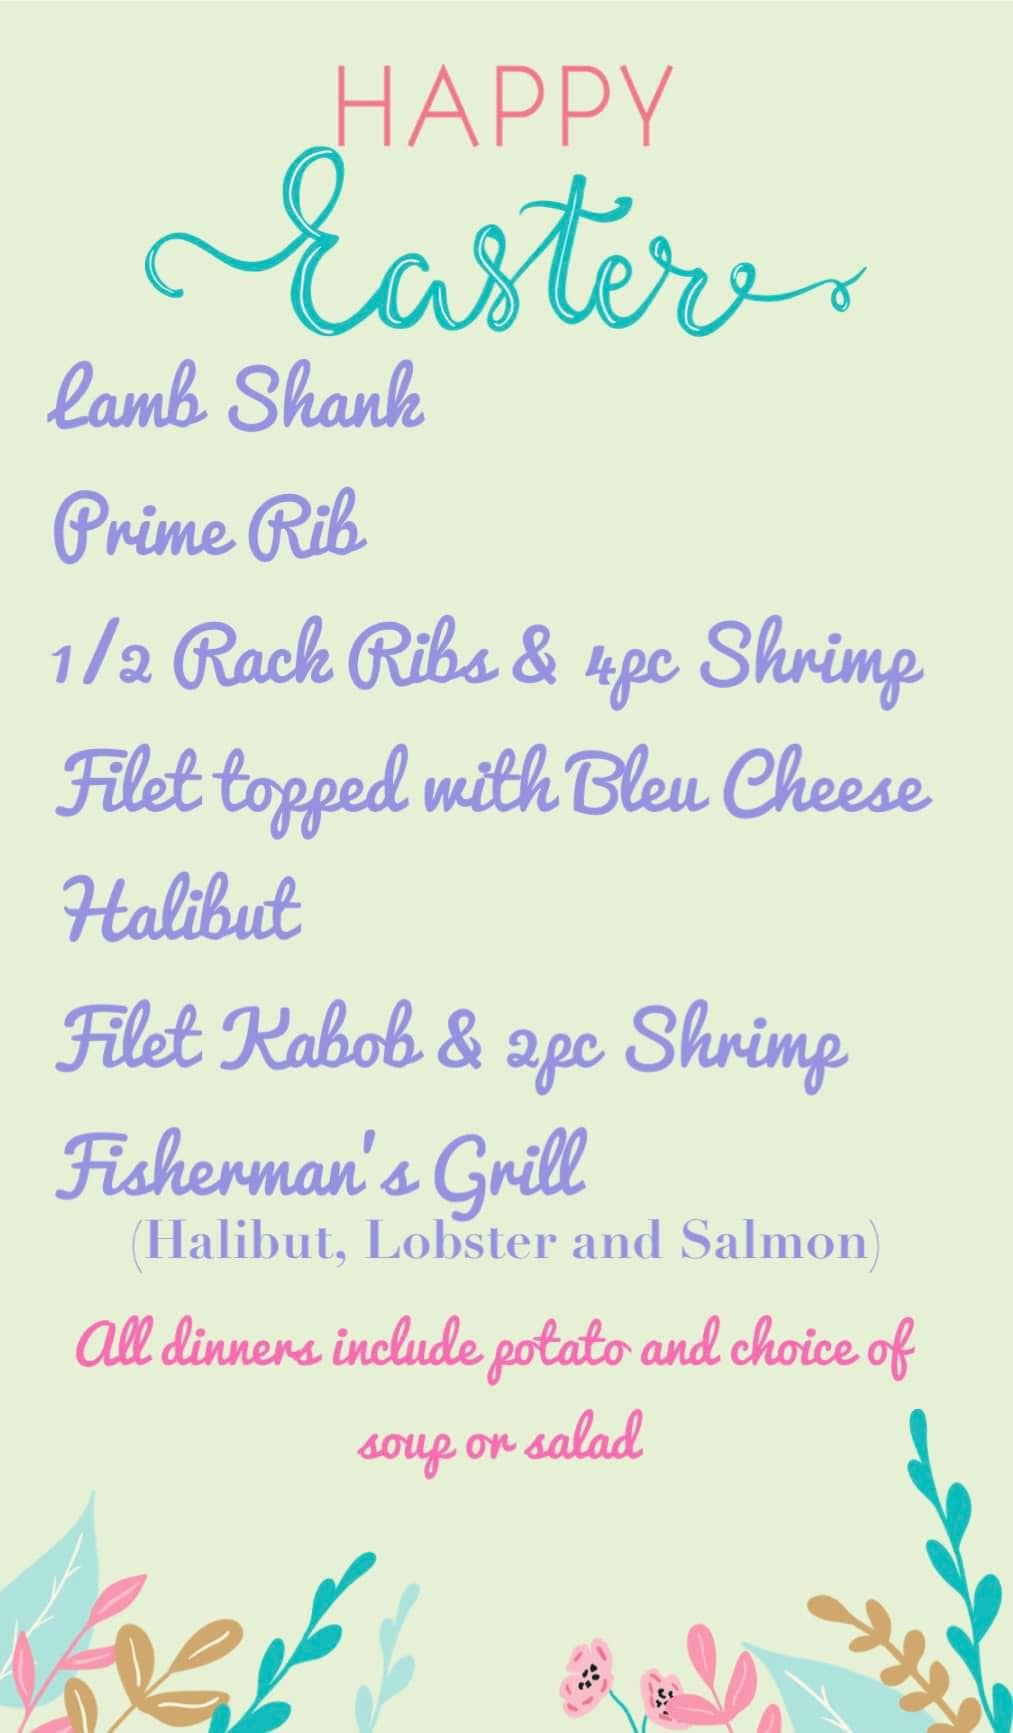 HAPPY
Easter
Lamb Shank
Prime Rib
1/2 Rack Ribs & 4pc Shrimp
Filet topped with Bleu Cheese
Halibut
Filet Kabob & 2pc Shrimp
Fisherman's Grill
(Halibut, Lobster and Salmon)
All dinners include potato and choice of
soup or salad